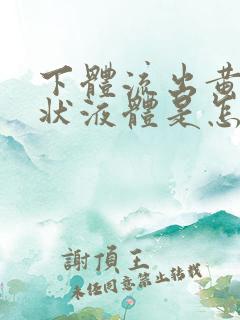 下體流出黄
狀液體是怎
謝頂王
未經同意禁止轉載